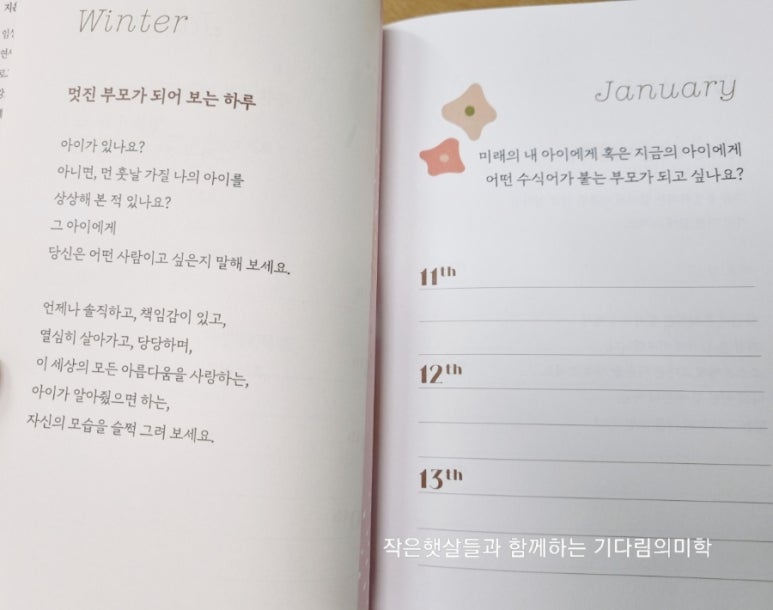 Winter
멋진 부모가 되어 보는 하루
아이가 있나요?
아니면, 먼 훗날 가질 나의 아이를
상상해 본 적 있나요?
그 아이에게
당신은 어떤 사람이고 싶은지 말해 보세요.
언제나 솔직하고, 책임감이 있고,
열심히 살아가고, 당당하며,
이 세상의 모든 아름다움을 사랑하는,
아이가 알아줬으면 하는,
자신의 모습을 슬쩍 그려 보세요.
January
미래의 내 아이에게 혹은 지금의 아이에게
어떤 수식어가 붙는 부모가 되고 싶나요?
11th
12th
13th
작은햇살들과 함께하는 기다림의미학